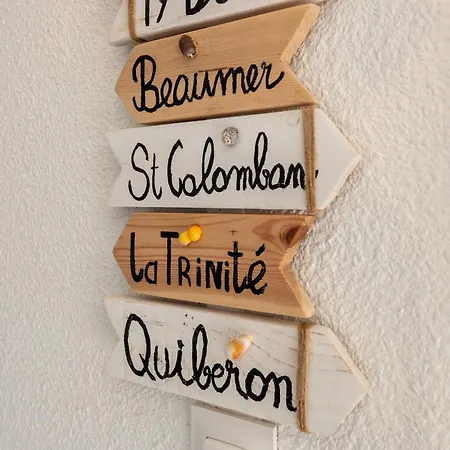 Beaumer
St Colomban
La TRiNité
Quiberon